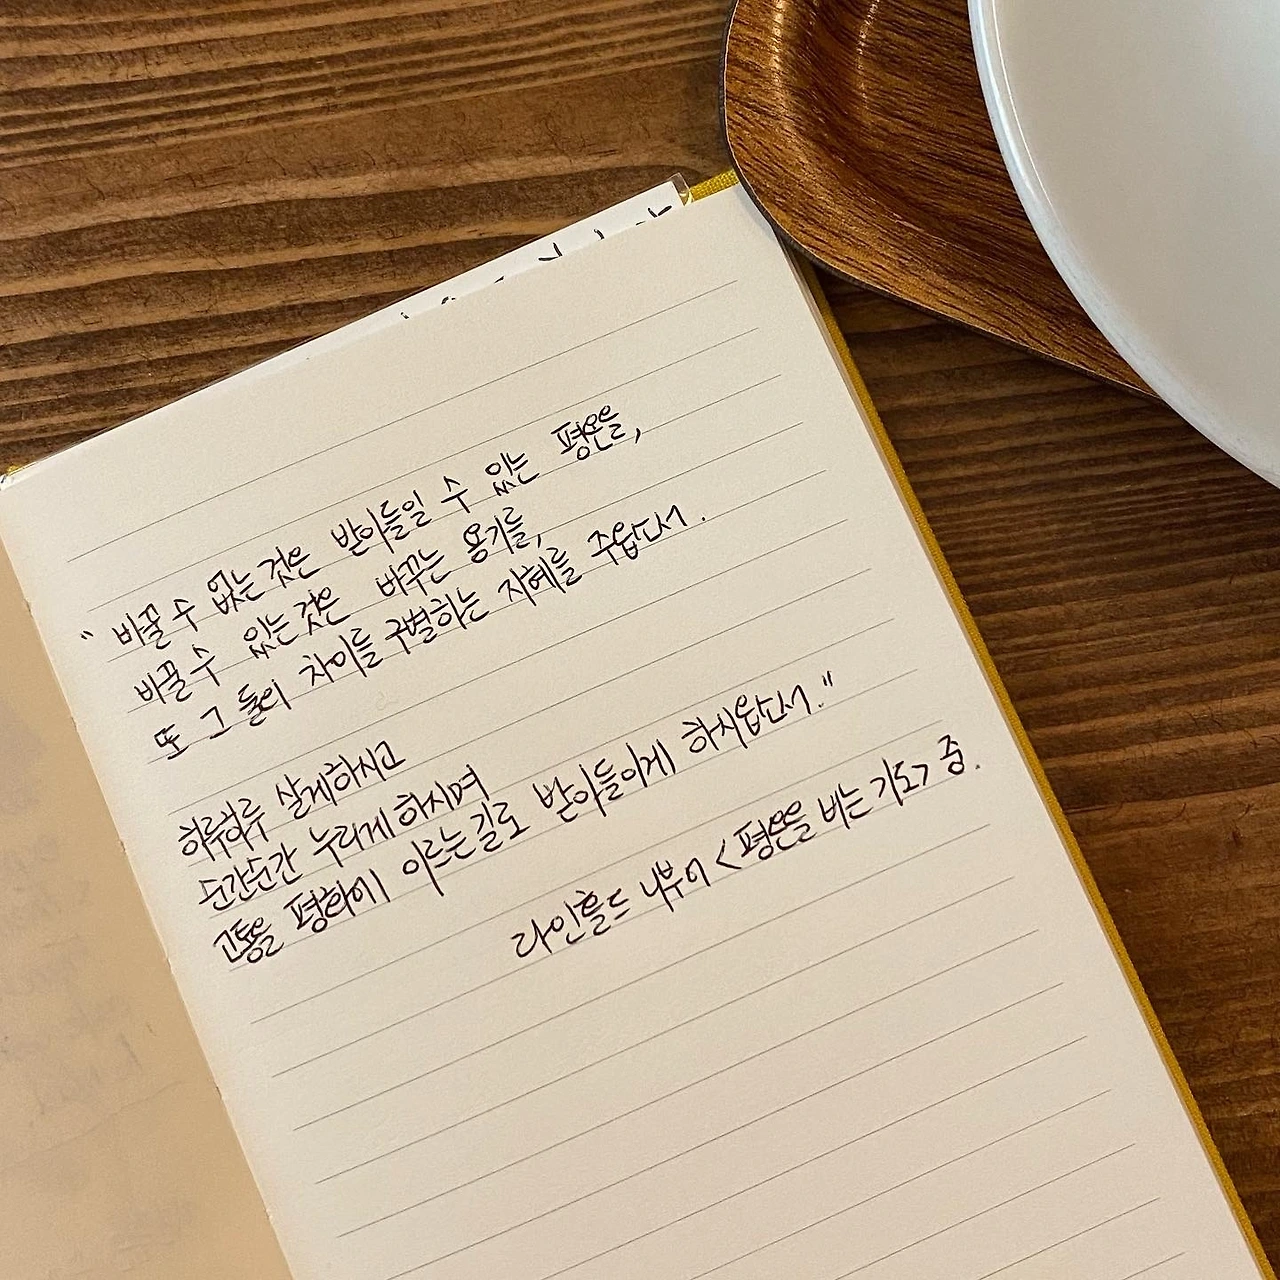 "바꿀 수 없는 것은 받아들일 수 있는 평온을,
바꿀 수 있는 것은 바꾸는 용기를,
또 그 둘의 차이를 구별하는 지혜를 주옵소서.
하루하루 살게하시고
순간순간 누리게 하시며
고통을 평화에 이르는 길로 받아들이게 하시옵소서."
라인홀드 니부어 <평온을 비는 기도> 중.